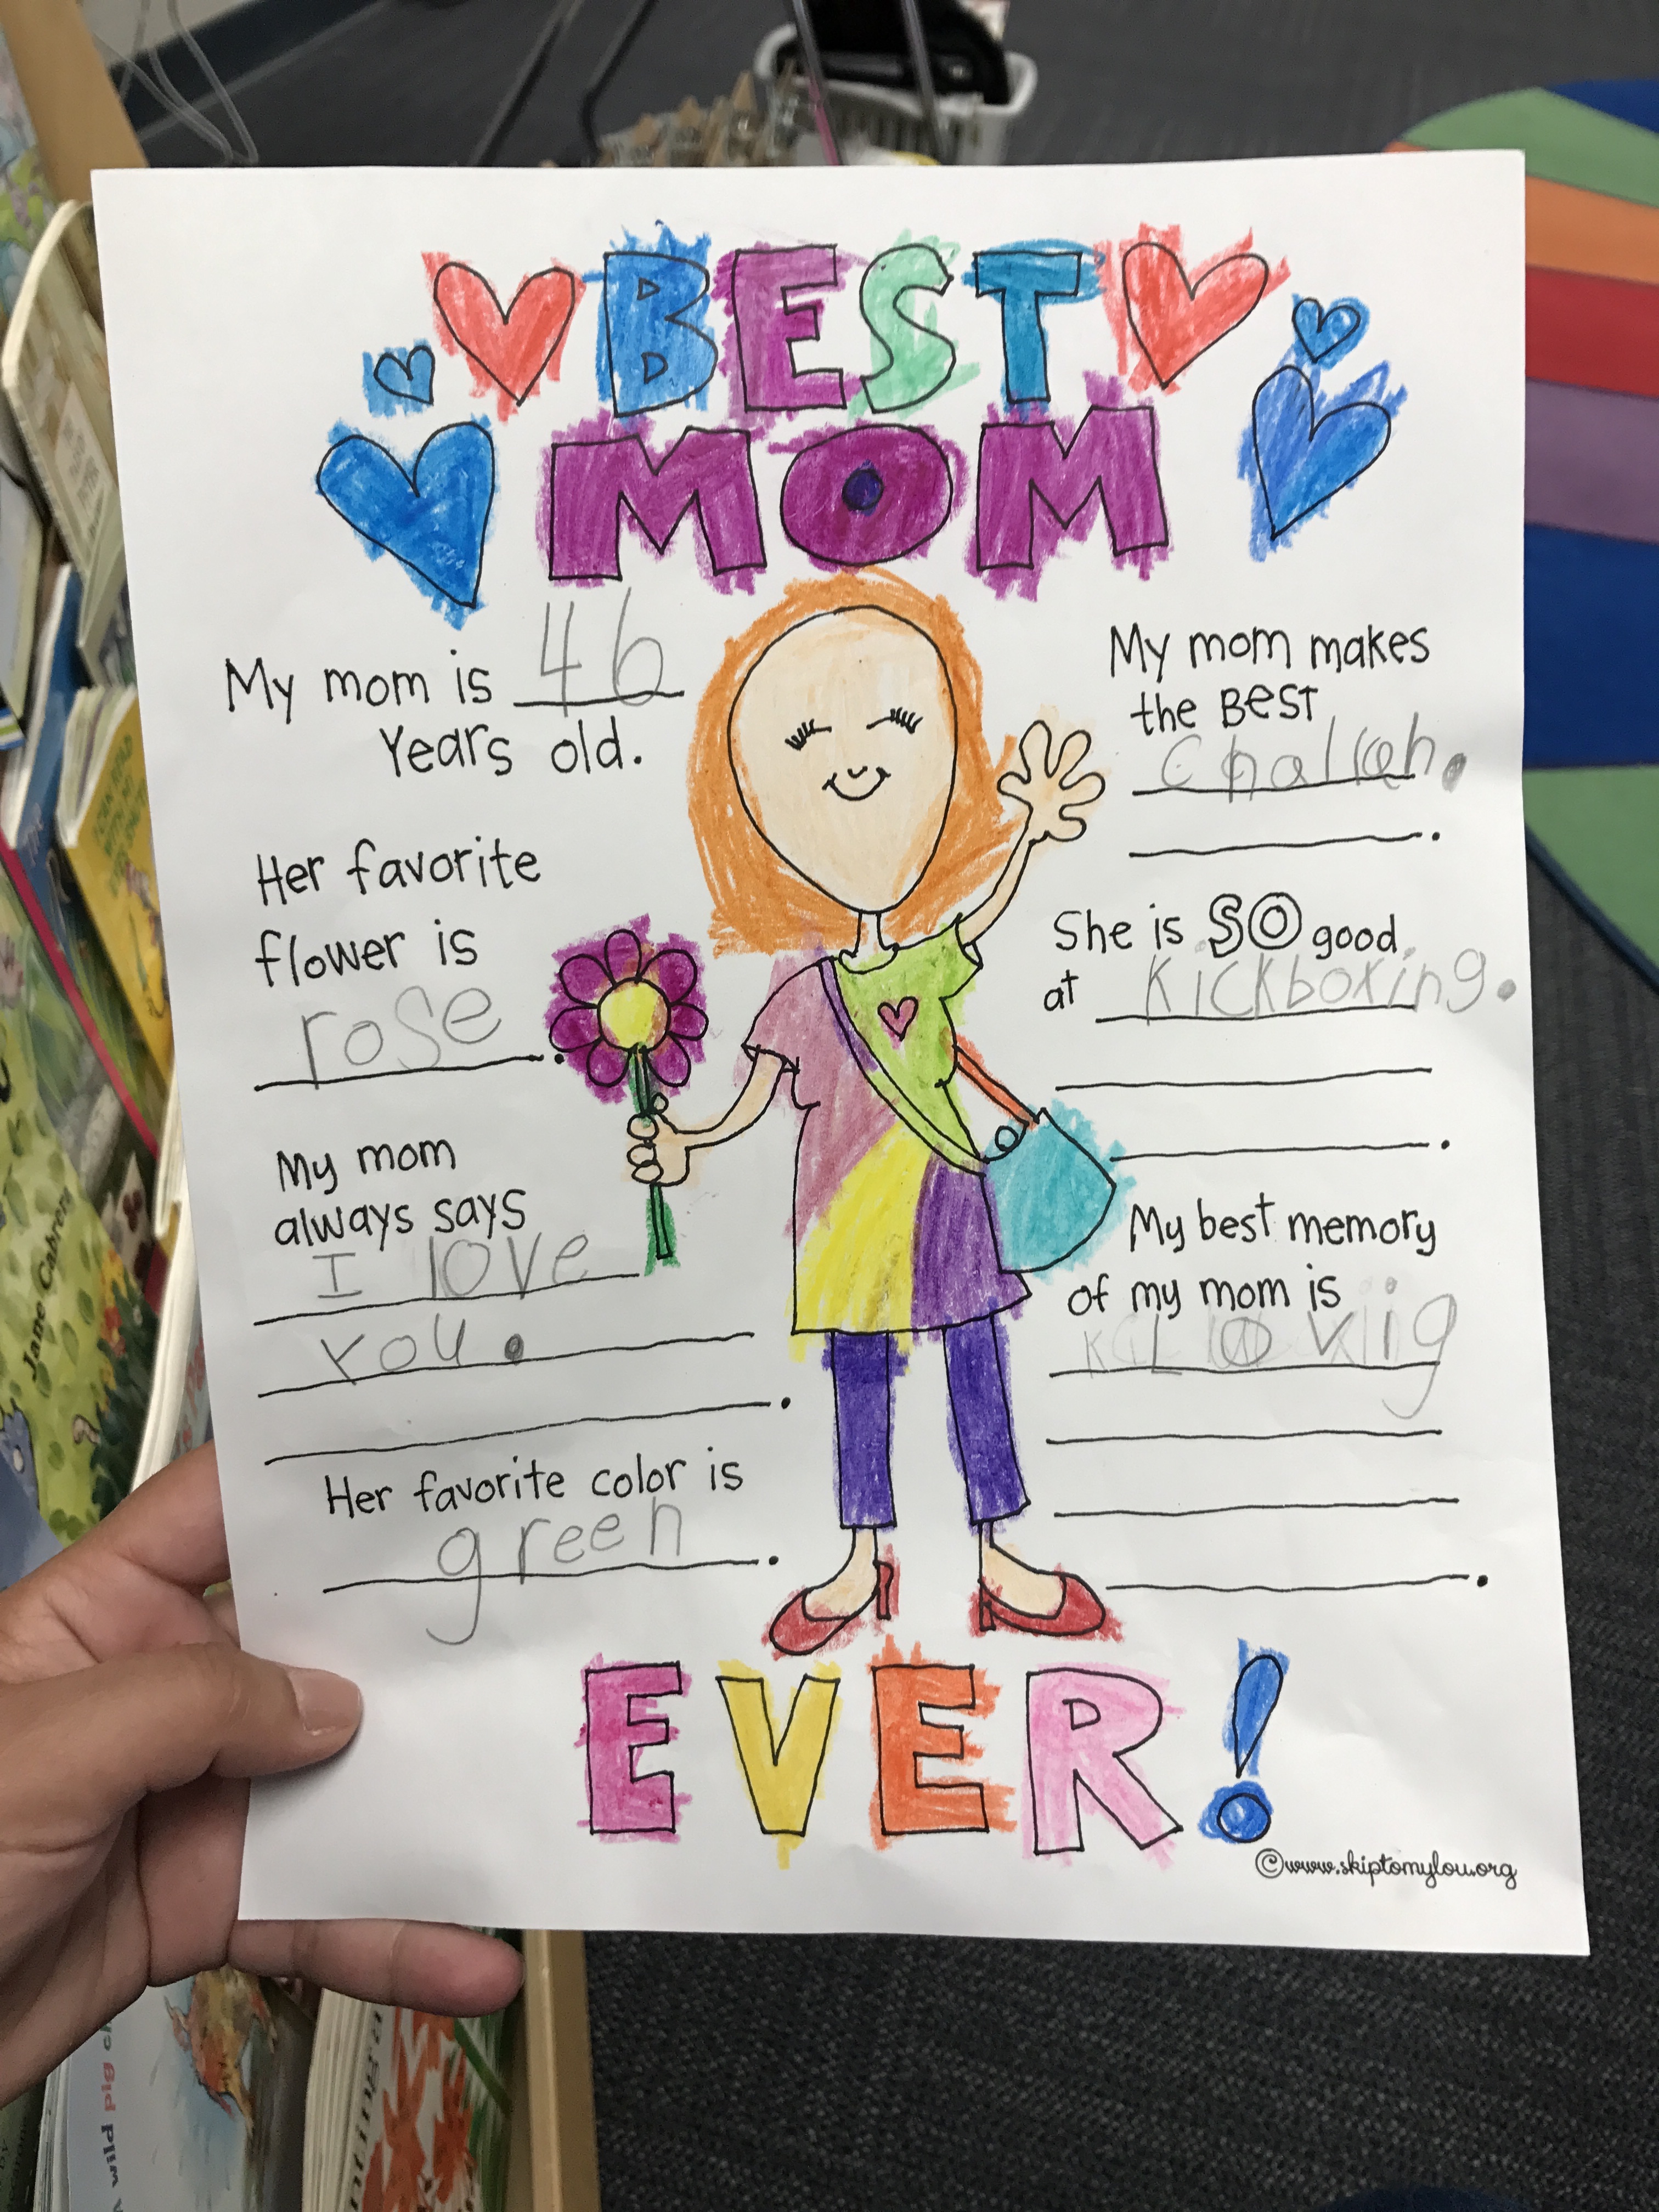 BEST
MOM
My mom is 46
Years old.
Her favorite
flower is
rose.
My mom
always says
I love
you.
Her favorite color is
green.
My mom makes
the BEST
Challah.
She is SO good
at Kickboxing.
My best memory
of my mom is
EVER!
©www.skiptomylou.org
Jane Cabrera
A wild pig